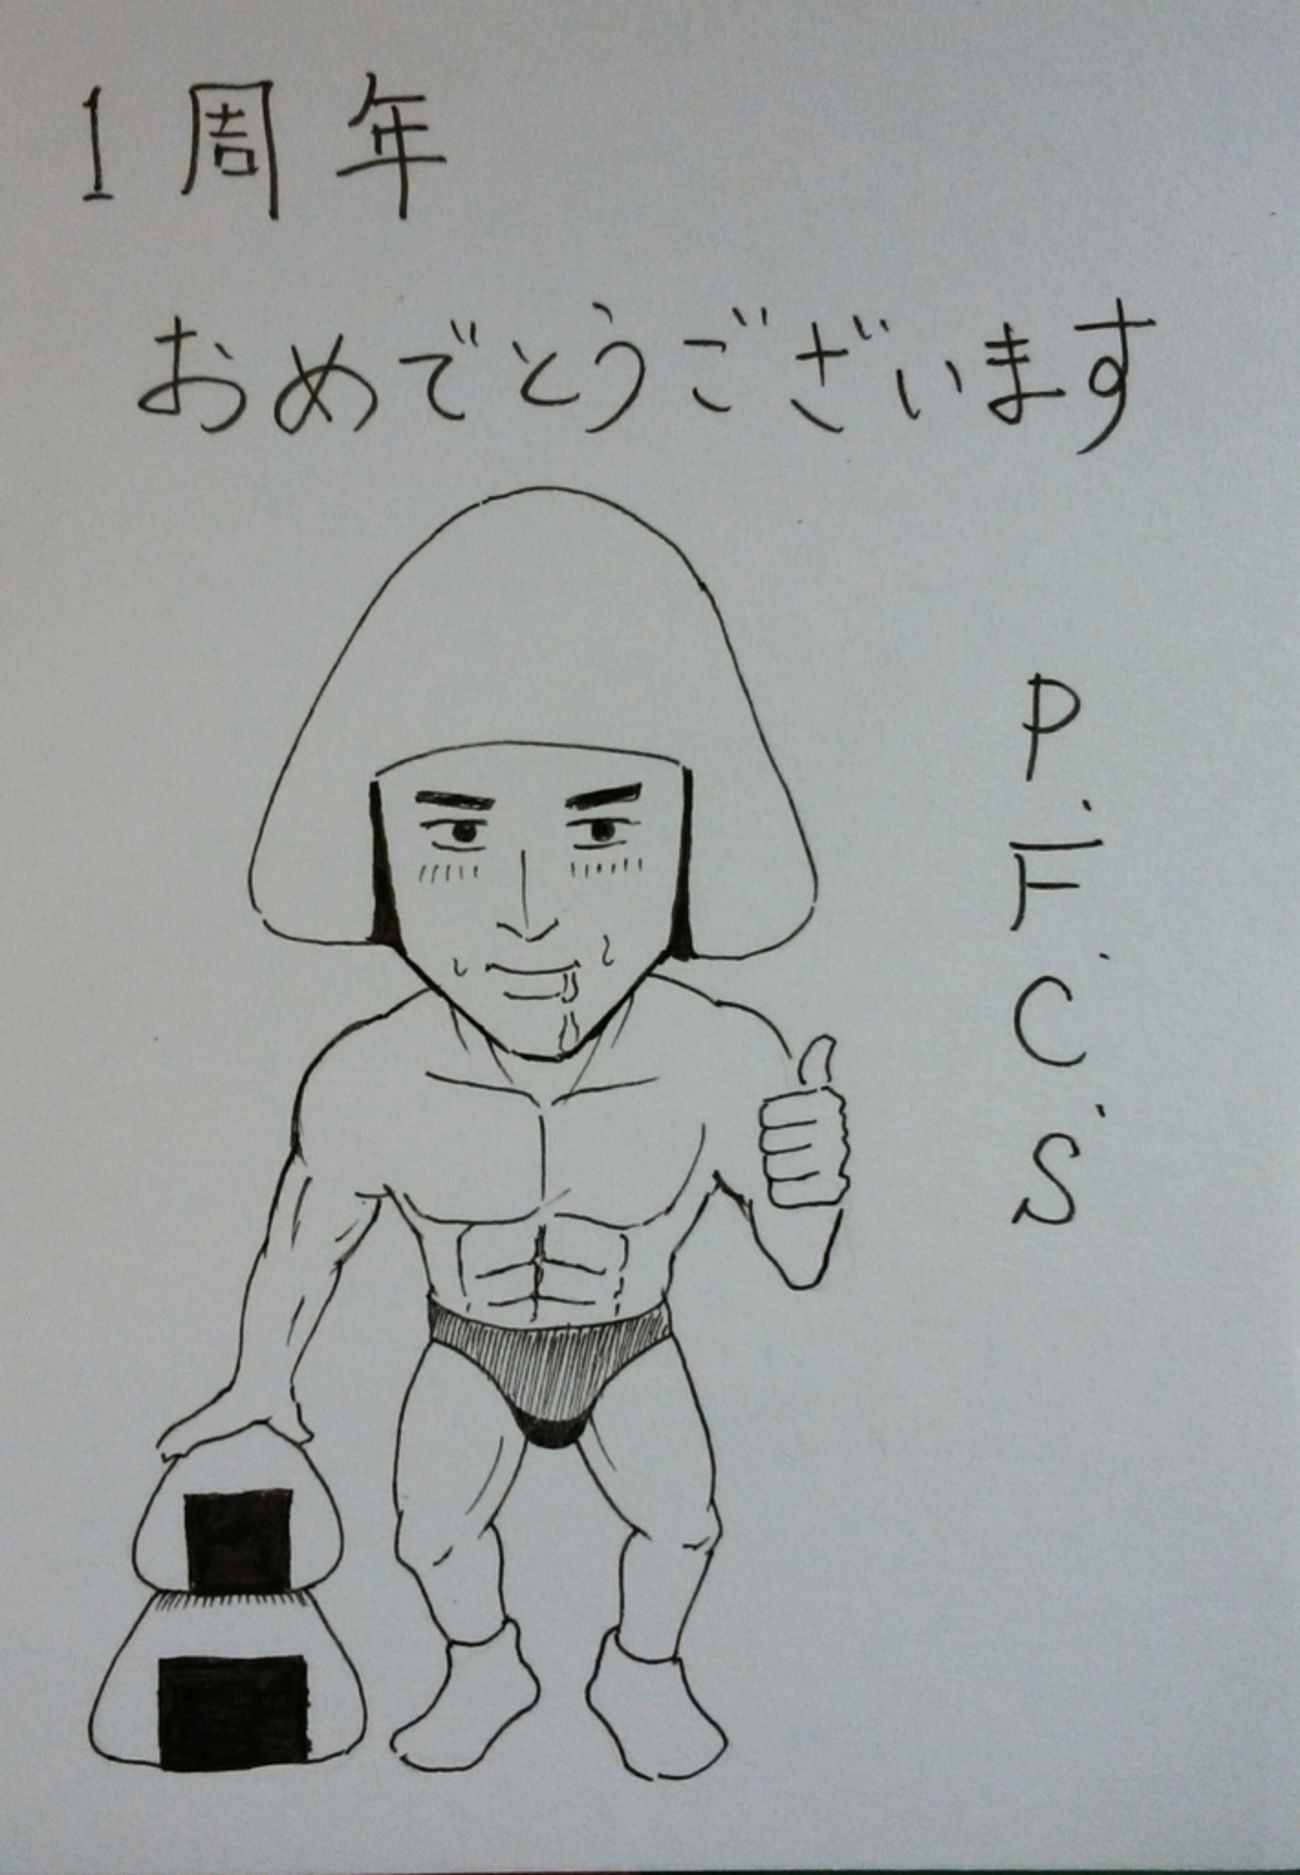 1周年
おめでとうございます
P.F.C.S